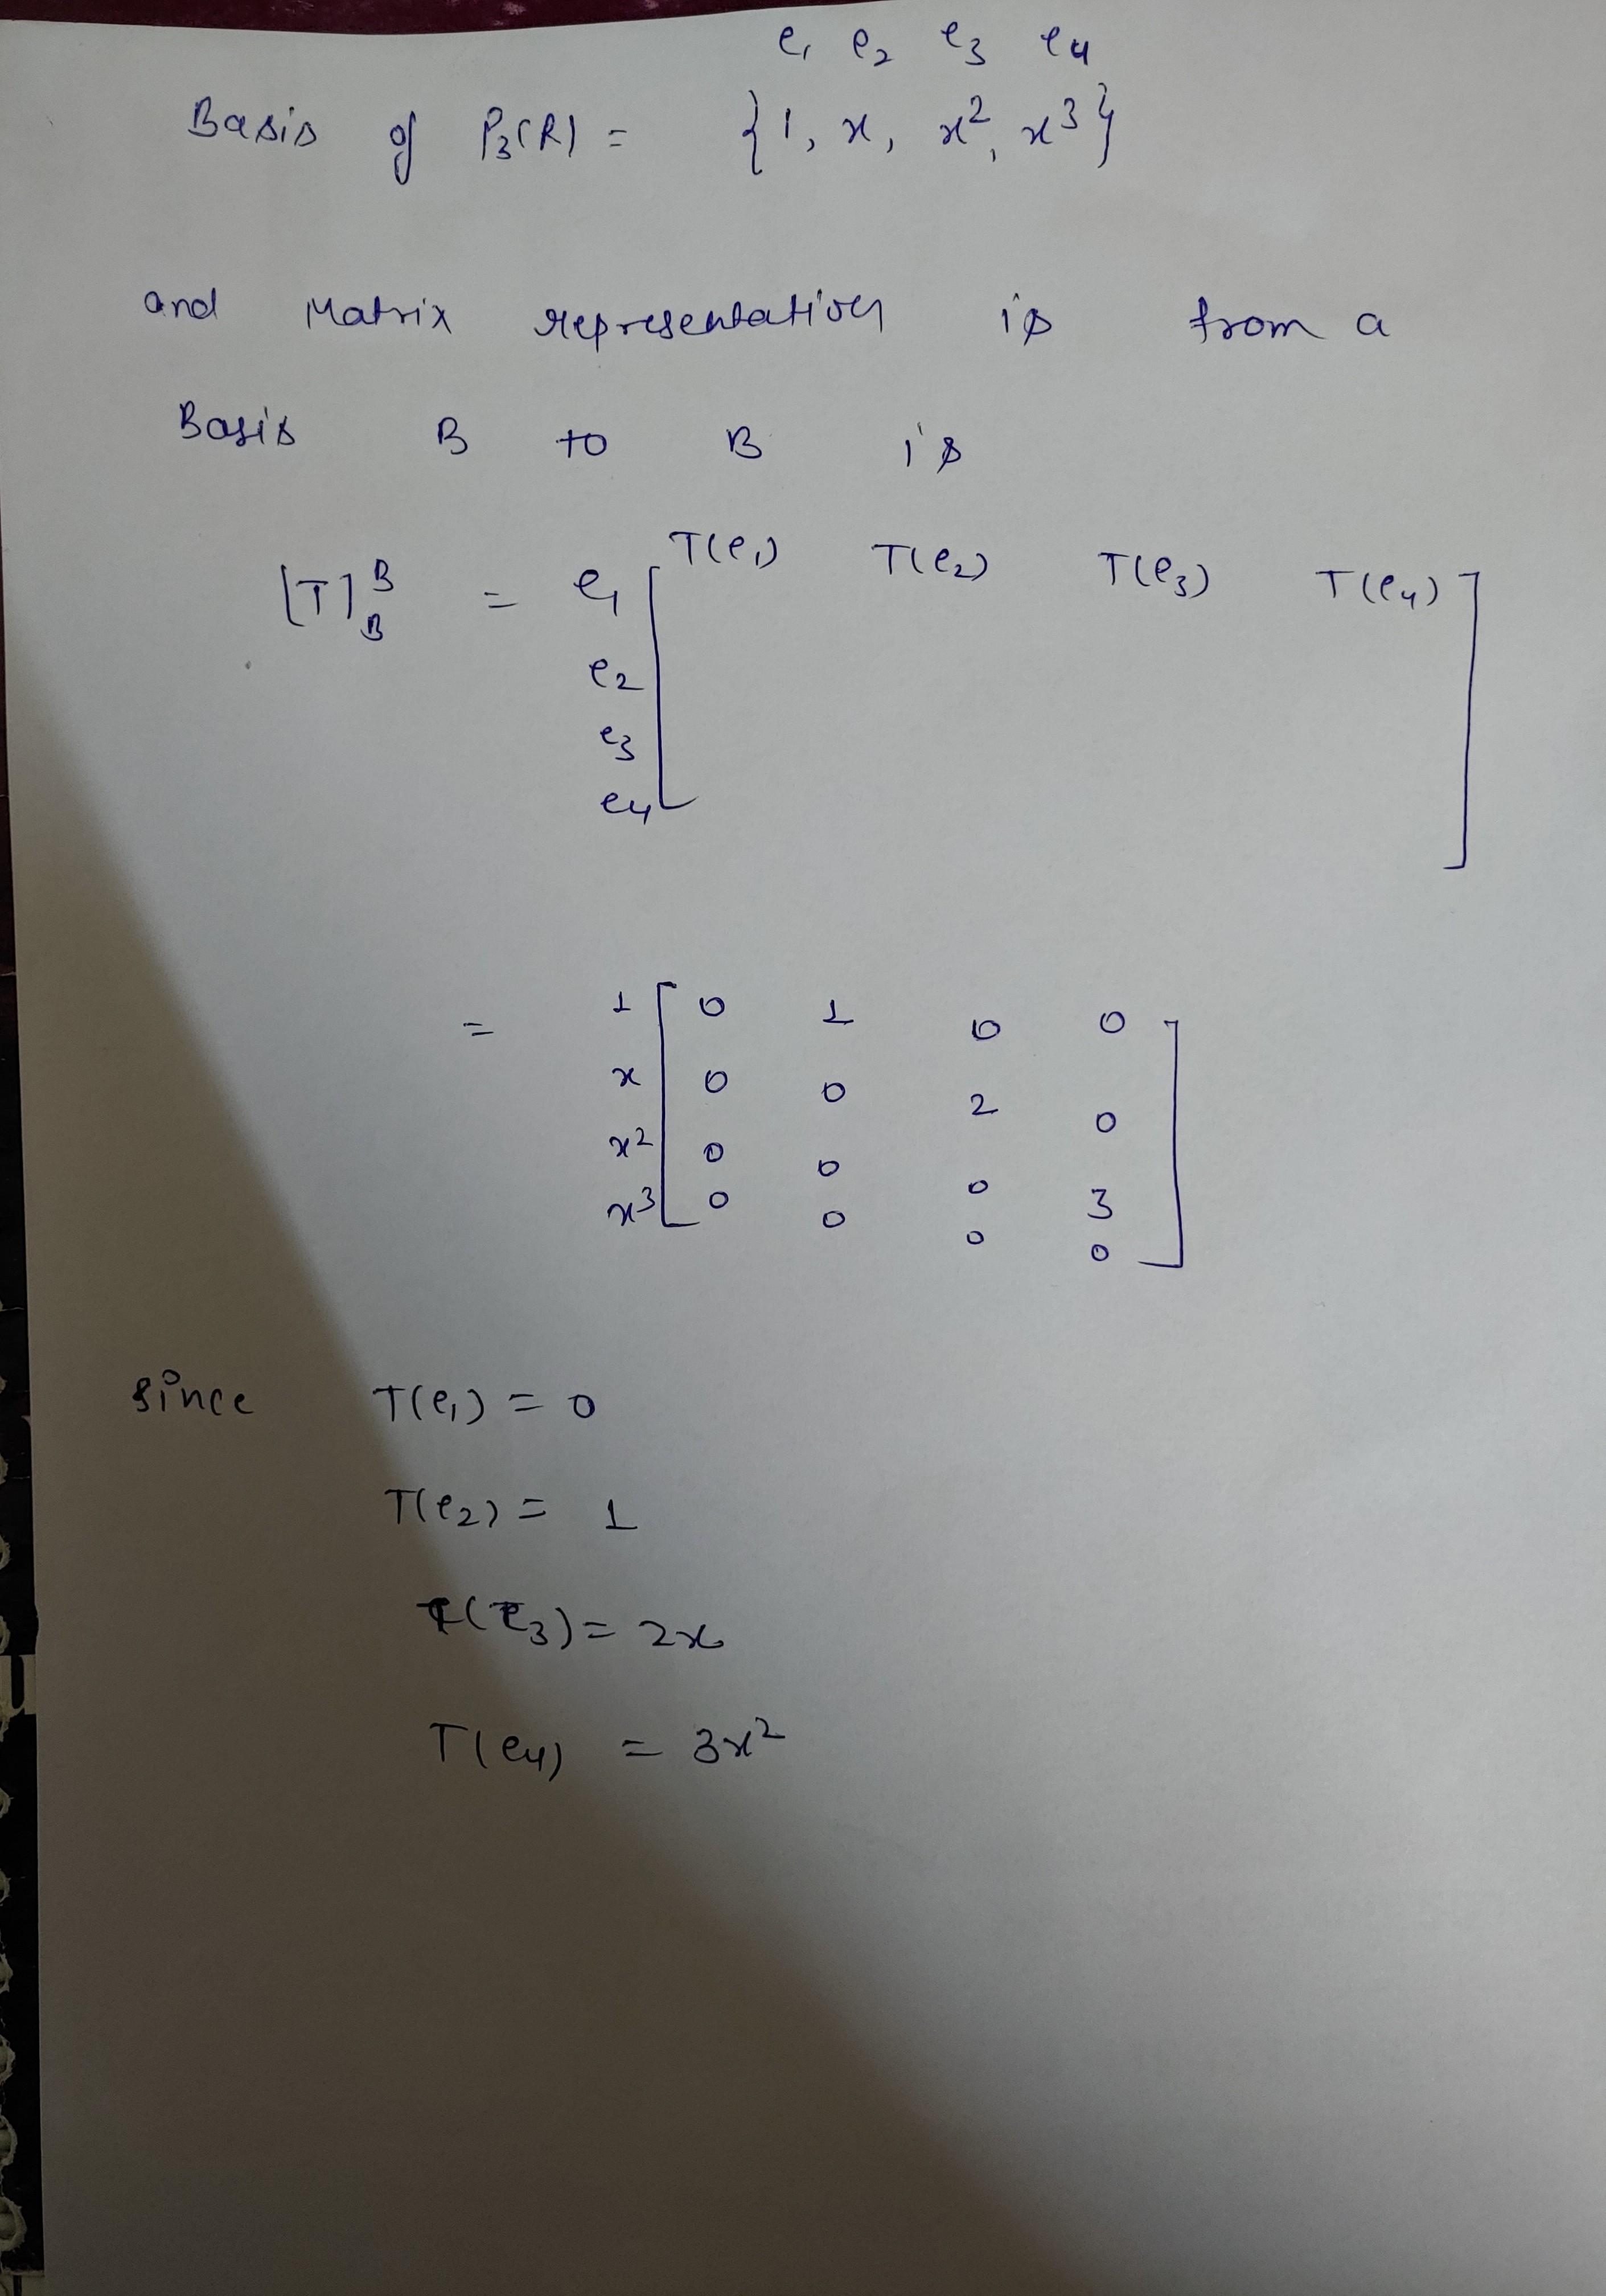 e1 e2 e3 e4
Basis of P3(R) = {1, x, x², x³}
and Matrix representation is from a
Basis B to B is
[T]_B^B = e1 [ T(e1) T(e2) T(e3) T(e4) ]
e2
e3
e4
= 1 [ 0 1 0 0 ]
x 0 0 2 0
x² 0 0 0 3
x³ 0 0 0 0
since T(e1) = 0
T(e2) = 1
T(e3) = 2x
T(e4) = 3x²